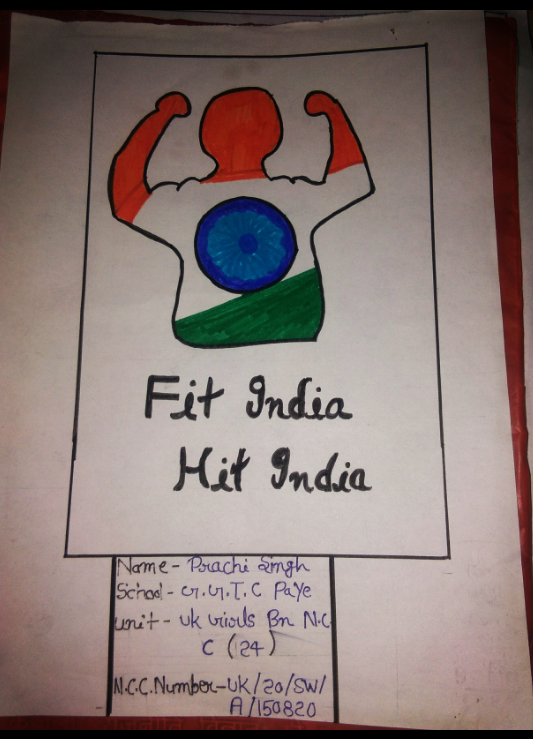 Fit India
Hit India
Name - Prachi Singh
School - G.G.I.C Paye
unit - uk Girls Bn N.C
C (24)
N.C.C.Number-UK/20/SW/
A/150820